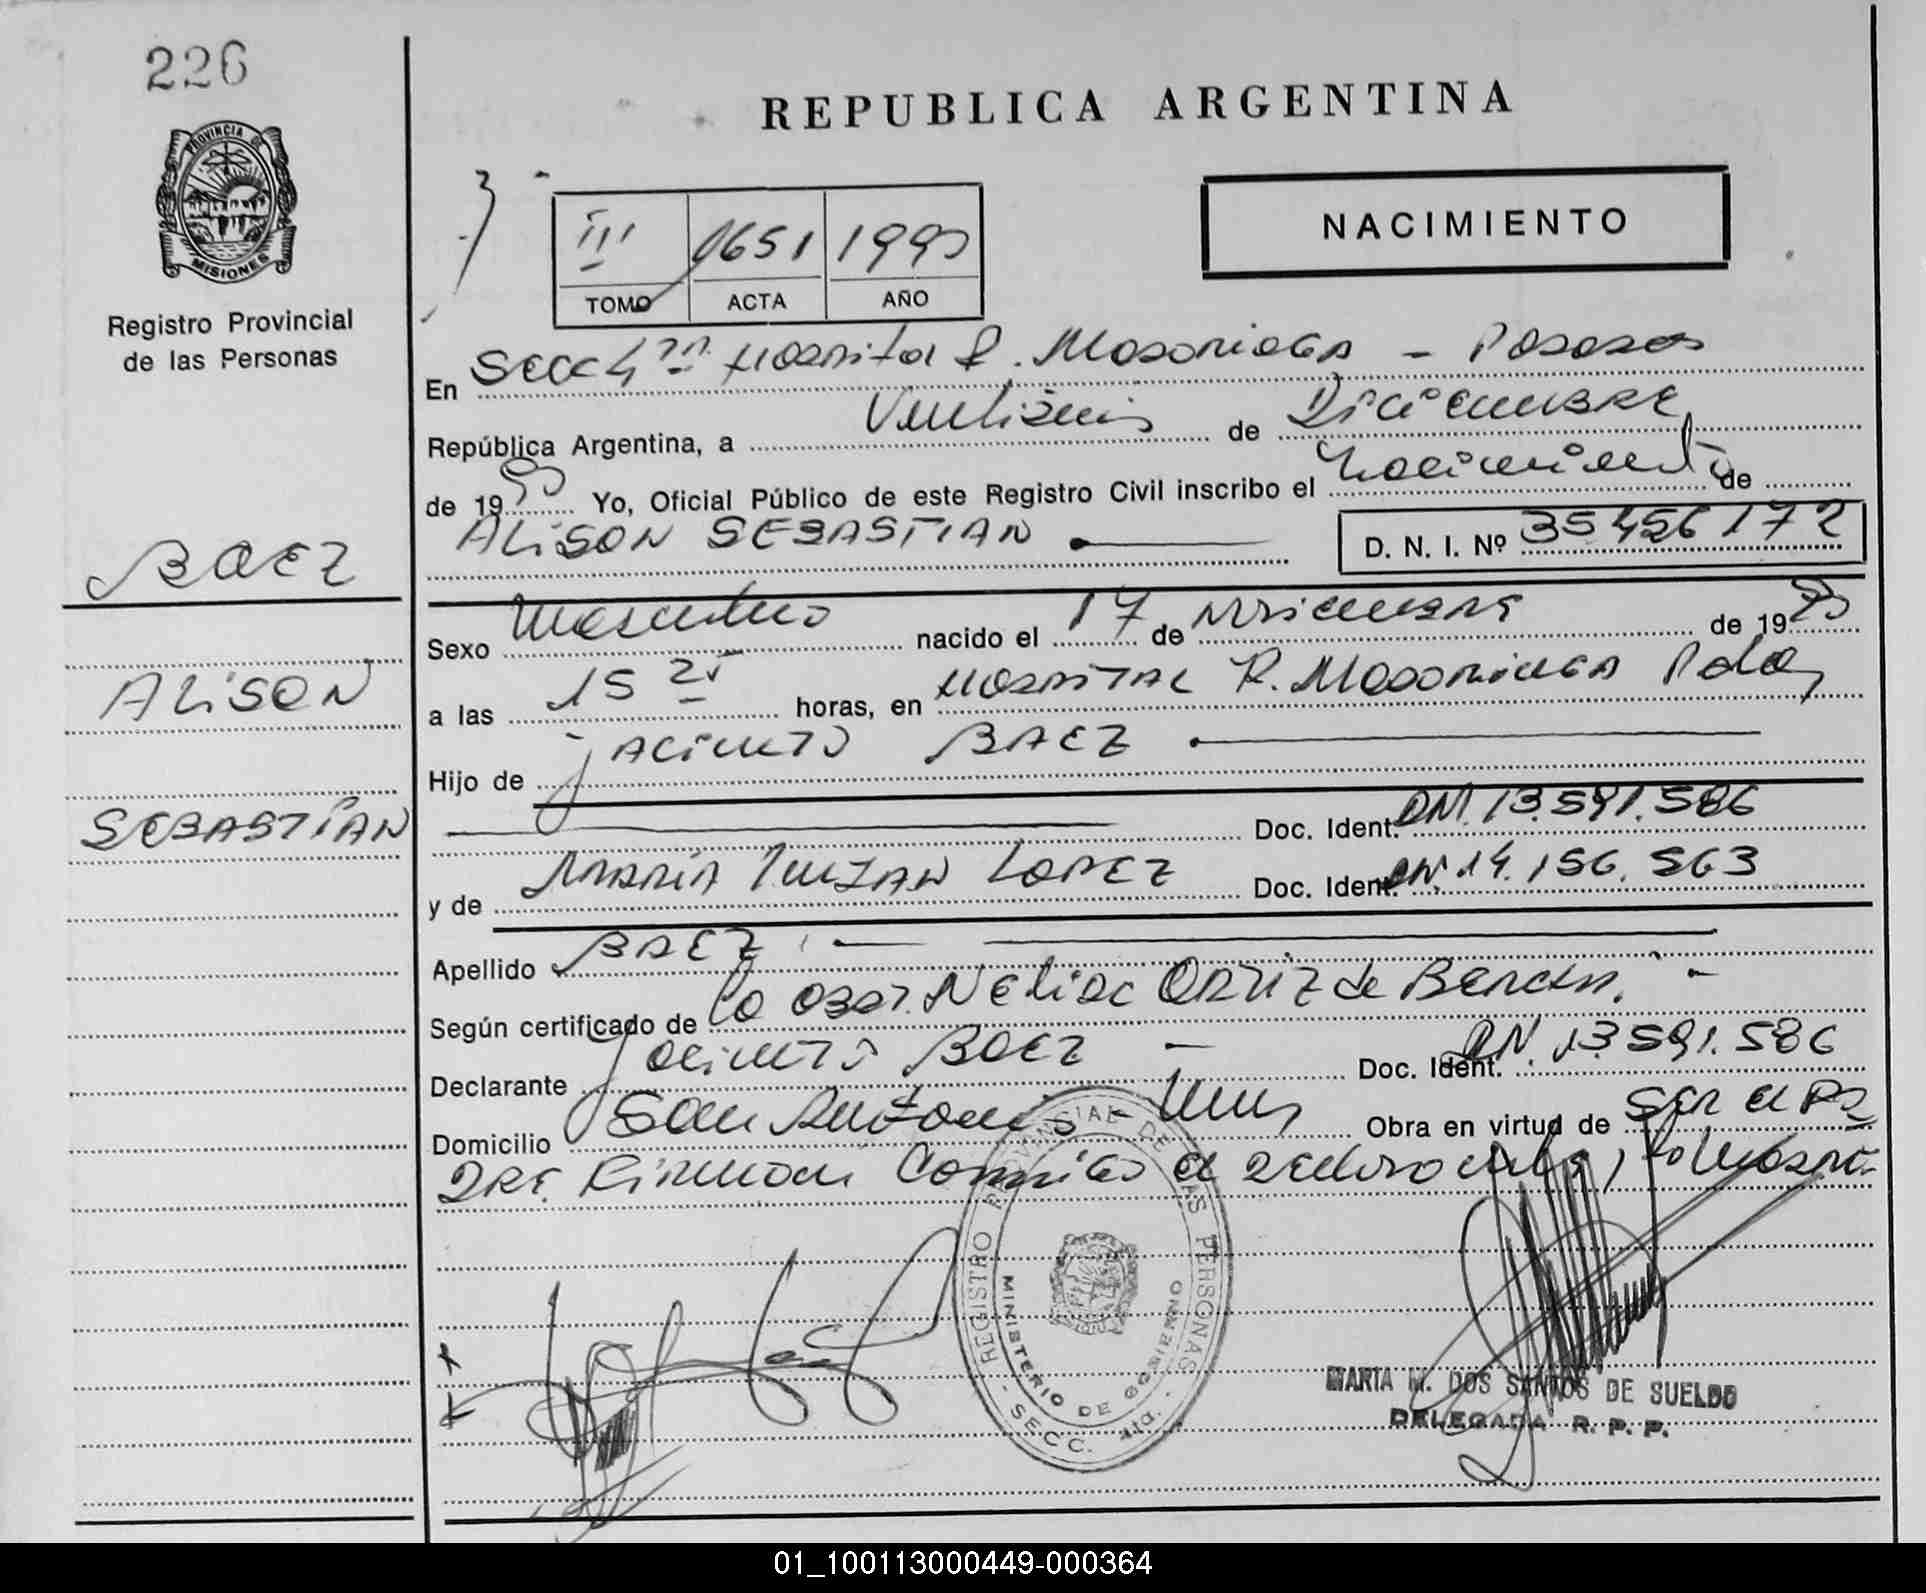 226
PROVINCIA DE
MISIONES
Registro Provincial
de las Personas
REPUBLICA ARGENTINA
NACIMIENTO
III 0651 1990
TOMO ACTA AÑO
En Secc 4ta Hospital R. Madariaga - Posadas
República Argentina, a Veintiseis de Diciembre
de 1990 Yo, Oficial Público de este Registro Civil inscribo el Nacimiento de
ALISON SEBASTIAN
D. N. I. Nº 35456172
BAEZ
ALISON
SEBASTIAN
Sexo Masculino nacido el 17 de de 1990
a las 15 25 horas, en Hospital R. Madariaga Pdas
Hijo de JACINTO BAEZ
Doc. Ident. DNI. 13.591.586
y de MARIA LOPEZ Doc. Ident. DNI. 14.156.563
Apellido BAEZ
Según certificado de la Obst. Nelida Ortiz de
Declarante Jacinto BAEZ - Doc. Ident. DNI. 13.591.586
Domicilio San Antonio - Mnes Obra en virtud de ser el Pa
dre. Firman el
REGISTRO PROVINCIAL DE LAS PERSONAS - SECC. 4ta. -
MINISTERIO DE GOBIERNO
MARTA M. DOS SANTOS DE SUELDO
DELEGADA R. P. P.
01_100113000449-000364